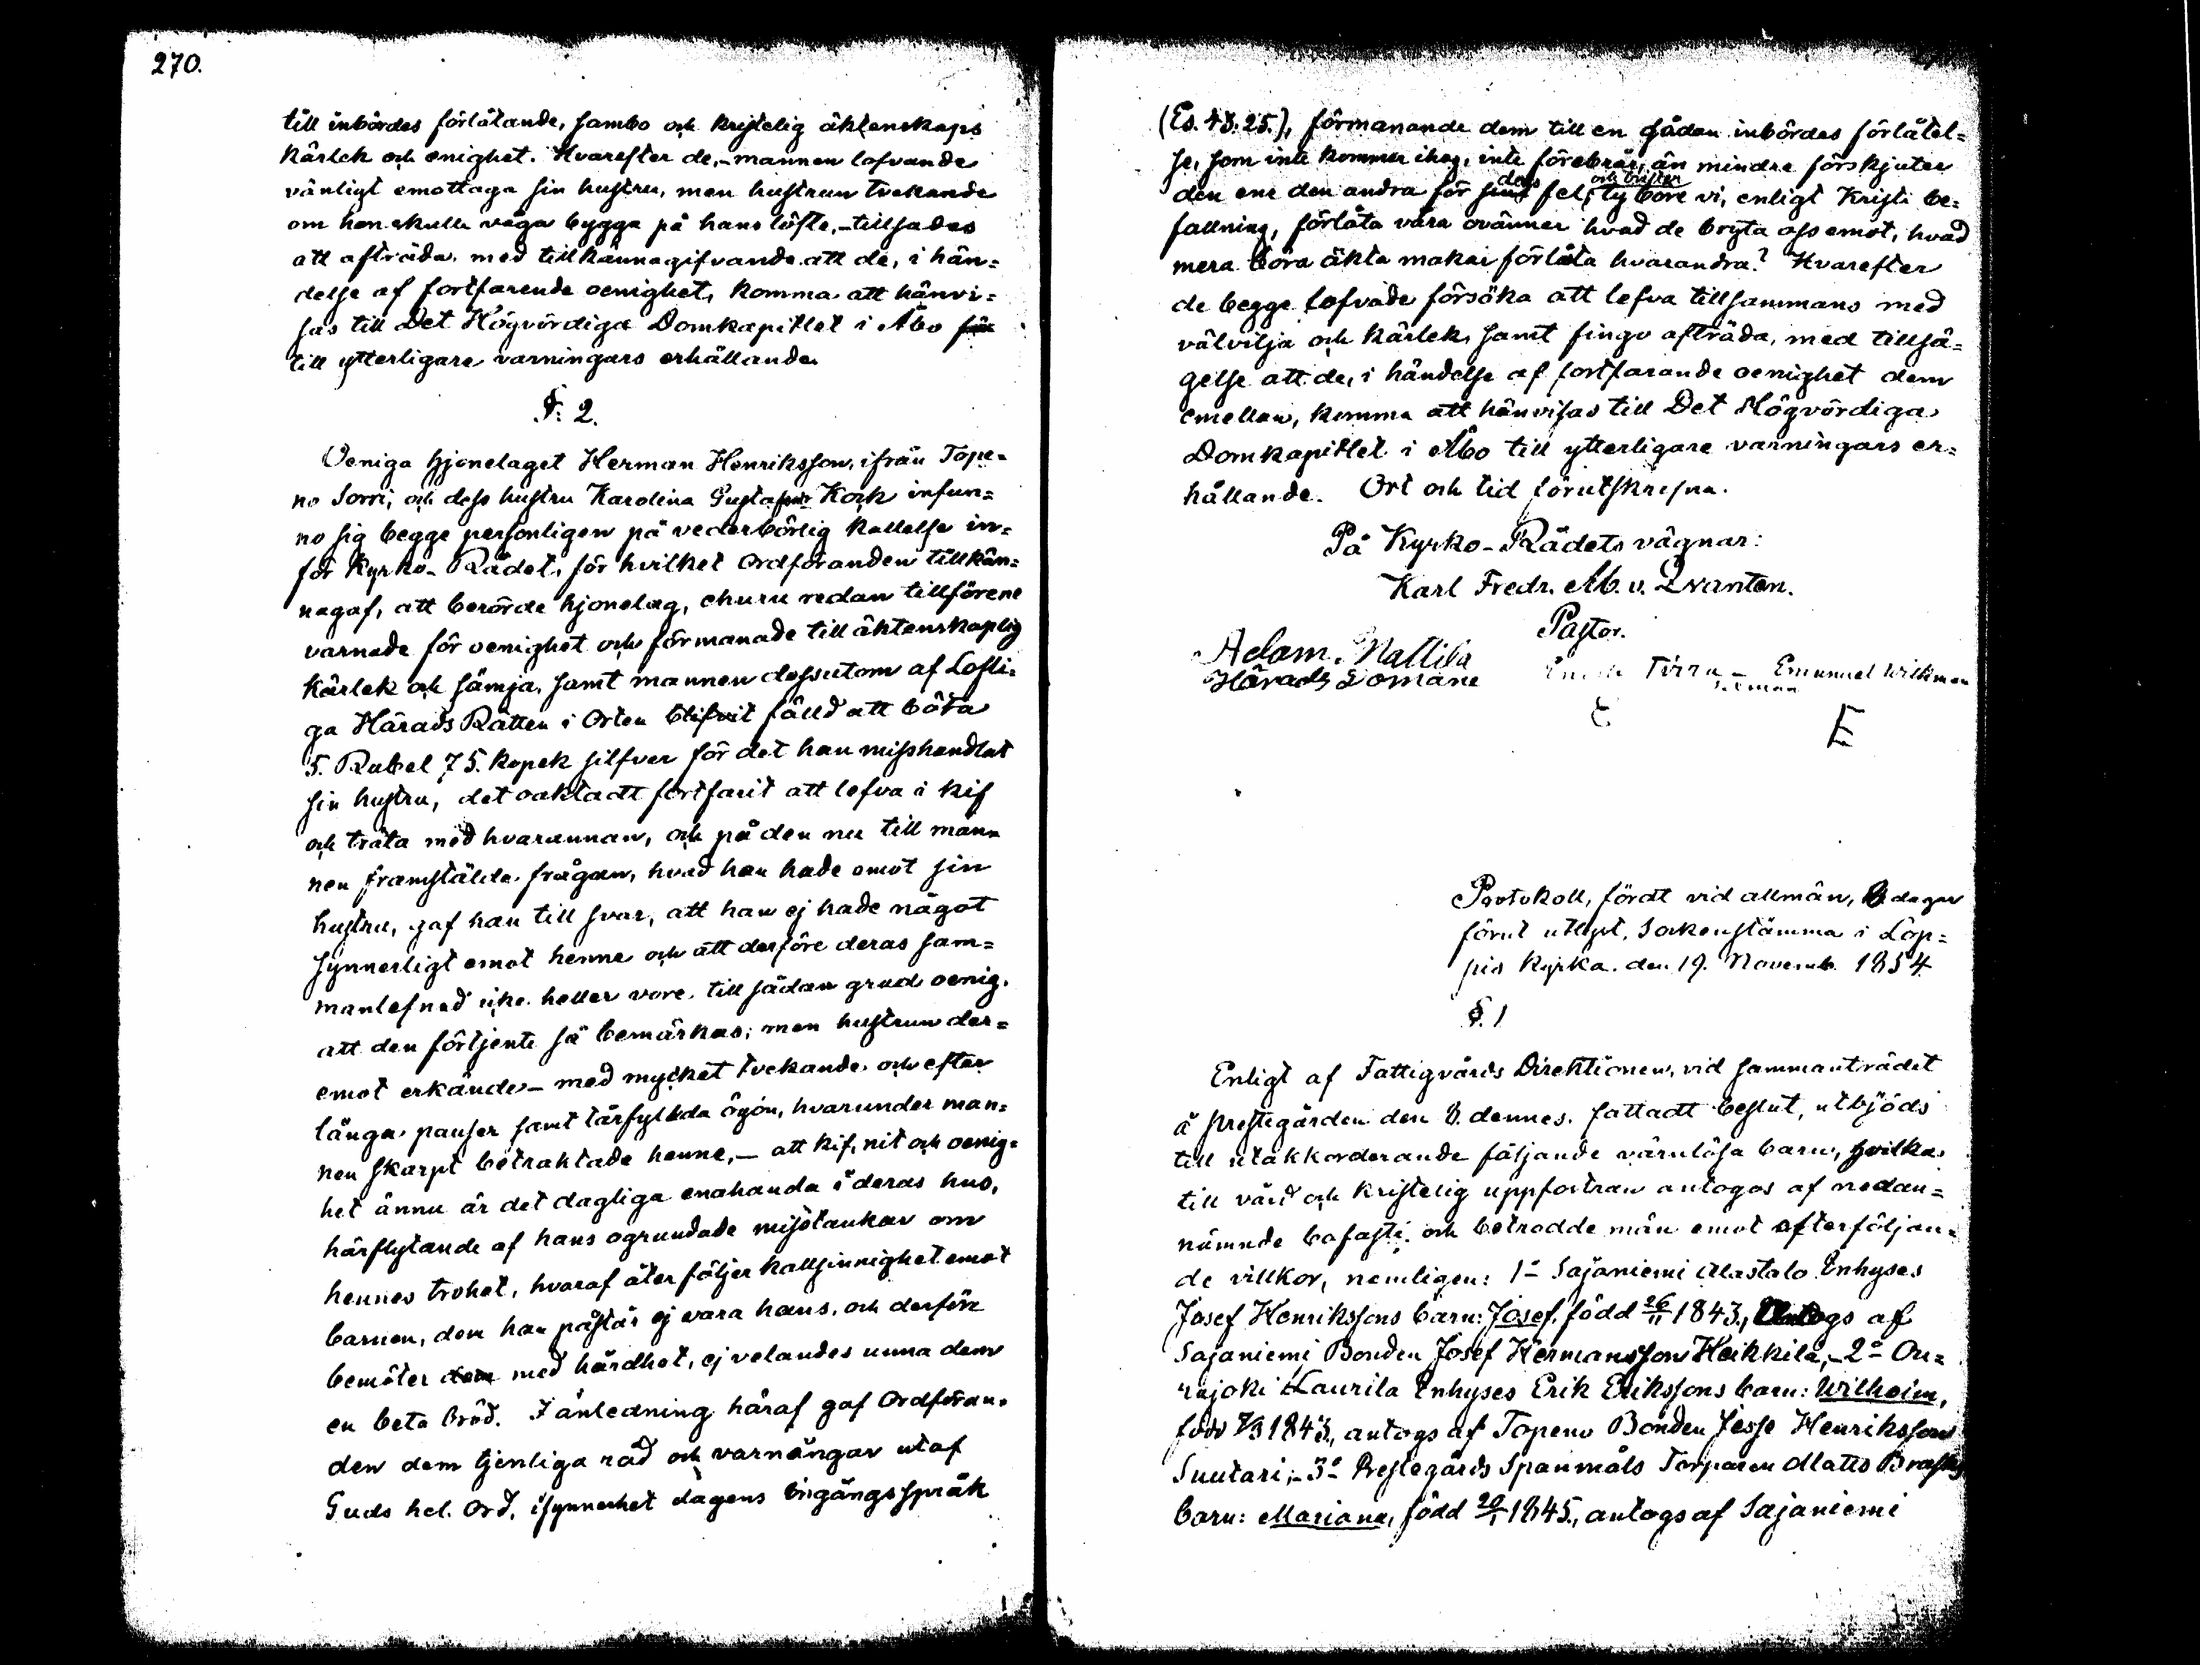 270.
till inbördes förlåtande, sambo och kristelig äktenskaps
kärlek och enighet. Hvarefter de, - mannen lofvande
vänligt emottaga sin hustru, men hustrun tvekande
om hon skulle våga bygga på hans löfte, - tillsades
att afträda, med tillkännagifvande att de, i hän=
delse af fortfarende oenighet, komma att hänvi=
sas till Det Högvördiga Domkapitlet i Åbo
till ytterligare varningars erhållande.
§. 2.
Oeniga hjonelaget Herman Henriksson, ifrån Tope=
no Sorri, och dess hustru Karolina Gustafsdr Kock infun=
no sig begge personligen på vederbörlig kallelse in=
för Kyrko-Rådet, för hvilket Ordföranden tillkän=
nagaf, att berörde hjonelag, ehuru redan tillförene
varnade för oenighet och förmanade till äktenskaplig
kärlek och sämja, samt mannen dessutom af Lofli=
ga Härads Rätten i Orten blifvit fälld att böta
5. Rubel 75. kopek silfver för det han misshandlat
sin hustru, det oaktadt fortfarit att lefva i kif
och träta med hvarannan, och på den nu till man=
nen framstälda frågan, hvad han hade emot sin
hustru, gaf han till svar, att han ej hade något
synnerligt emot henne och att derföre deras sam=
manlefnad icke heller vore till sådan grad oenig,
att den förtjente så bemärkas; men hustrun der=
emot erkände - med mycket tvekande och efter
långa pauser samt tårfyllda ögon, hvarunder man=
nen skarpt betraktade henne, - att kif, nit och oenig=
het ännu är det dagliga enahanda i deras hus,
härflytande af hans ogrundade misstankar om
hennes trohet, hvaraf åter följer kallsinnighet emot
barnen, dem han påstår ej vara hans, och derföre
bemöter dem med hårdhet, ej velandes unna dem
en beta bröd. I anledning häraf gaf Ordföran=
den dem tjenliga råd och varningar utaf
Guds hel. Ord, isynnerhet dagens Ingångsspråk
(Es. 43. 25.), förmanande dem till en sådan inbördes förlåtel=
se, som inte kommer ihog, inte förebrår, än mindre förskjuter
den ene den andra för dess fel och brister; ty böre vi, enligt Kristi be=
fallning, förlåta våra ovänner hvad de bryta oss emot, hvad
mera böra äkta makar förlåta hvarandra? Hvarefter
de begge lofvade försöka att lefva tillsammans med
välvilja och kärlek, samt fingo afträda, med tillsä=
gelse att de, i händelse af fortfarande oenighet dem
emellan, komma att hänvisas till Det Högvördiga
Domkapitlet i Åbo till ytterligare varningars er=
hållande. Ort och tid förutskrefna.
På Kyrko-Rådets vägnar:
Karl Fredr. Ab. v. Qvanten.
Pastor.
Adam. Mattila
Härads Domare
Tirra - Emanuel Wilkman
E
Protokoll, fördt vid allmän, 8 dagar
förut utlyst, Sockenstämma i Lop=
pis Kyrka den 19. Novemb. 1854
§. 1
Enligt af Fattigvårds Direktionen, vid sammanträdet
å prestegården den 8. dennes, fattadt beslut, utbjöds
till utackorderande följande värnlösa barn, hvilka
till vård och kristelig uppfostran antogos af nedan=
nämnde bofaste och betrodde män emot efterföljan=
de villkor, nemligen: 1o Sajaniemi Alastalo Enhyses
Josef Henrikssons barn: Josef, född 26/11 1843., antogs af
Sajaniemi Bonden Josef Hermansson Heikkilä, - 2o Ou=
rajoki Laurila Enhyses Erik Erikssons barn: Wilhelm,
född 7/3 1843., antogs af Topeno Bonden Jesse Henriksson
Suutari, - 3o Prestegårds Spanmåls Torparen Matts Brasks
barn: Mariana, född 20/1 1845., antogs af Sajaniemi